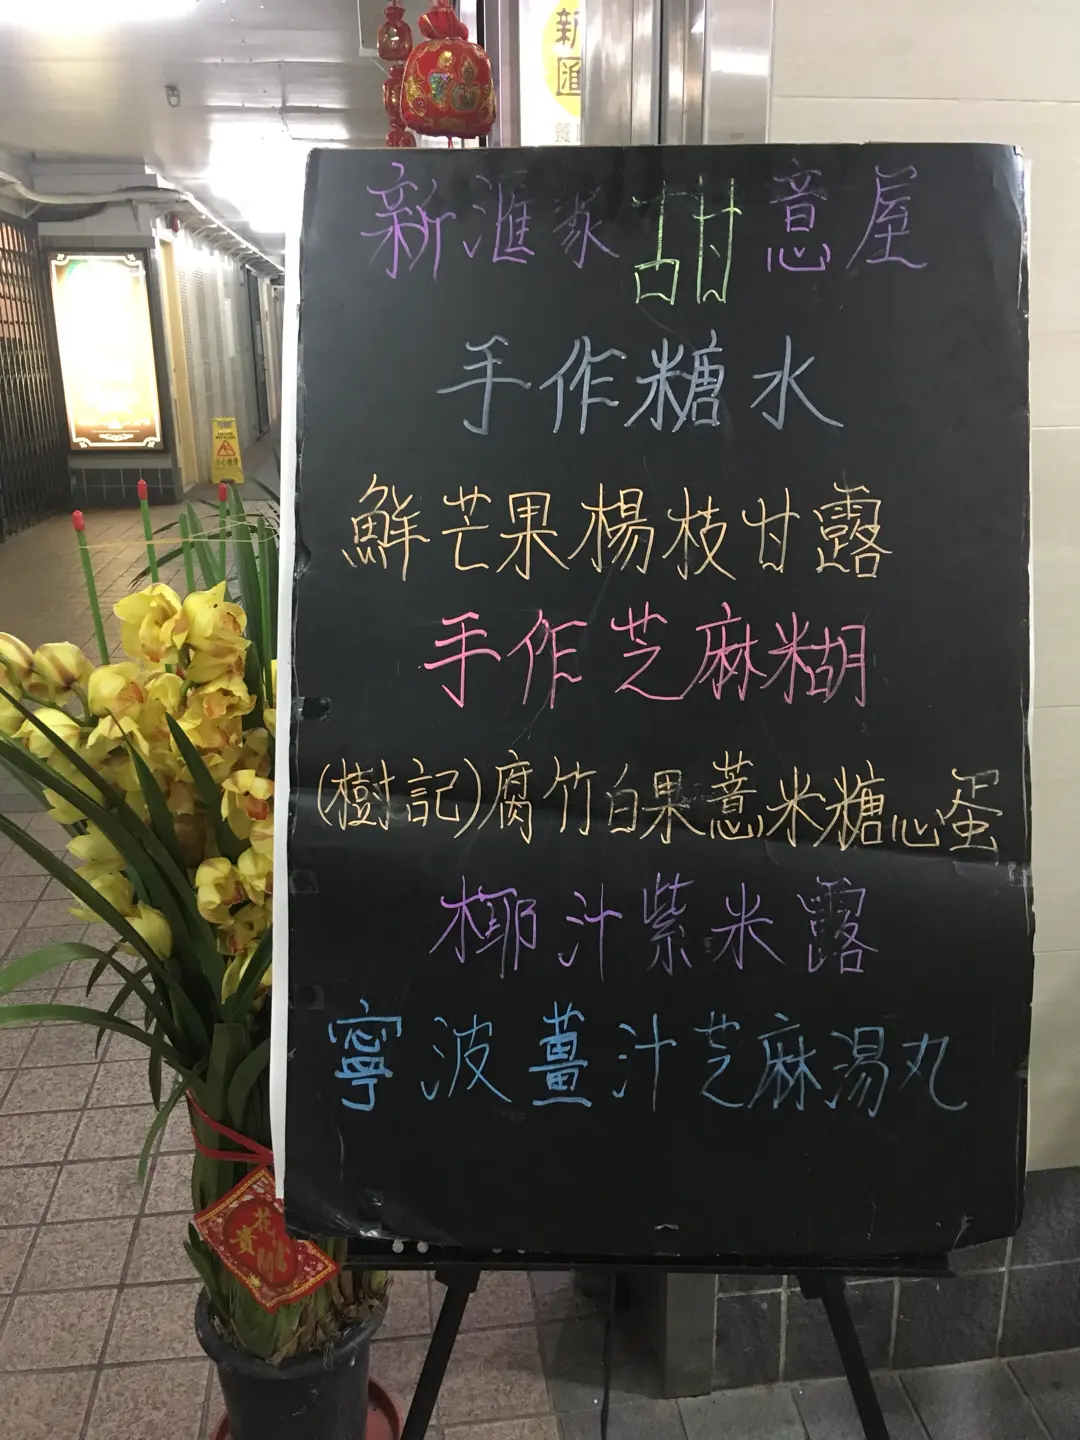 新
匯
餐
新滙家甜意屋
手作糖水
鮮芒果楊枝甘露
手作芝麻糊
(樹記)腐竹白果薏米糖心蛋
椰汁紫米露
寧波薑汁芝麻湯丸
花
貴